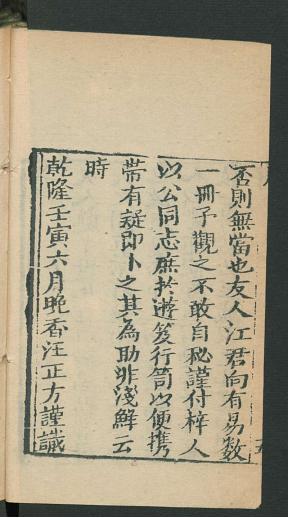 否則無當也友人江君向有易數
一冊予觀之不敢自秘謹付梓人
以公同志庶於遊笈行笥以便携
帶有疑即卜之其為助非淺鮮云
時
乾隆壬寅六月晚香汪正方謹識